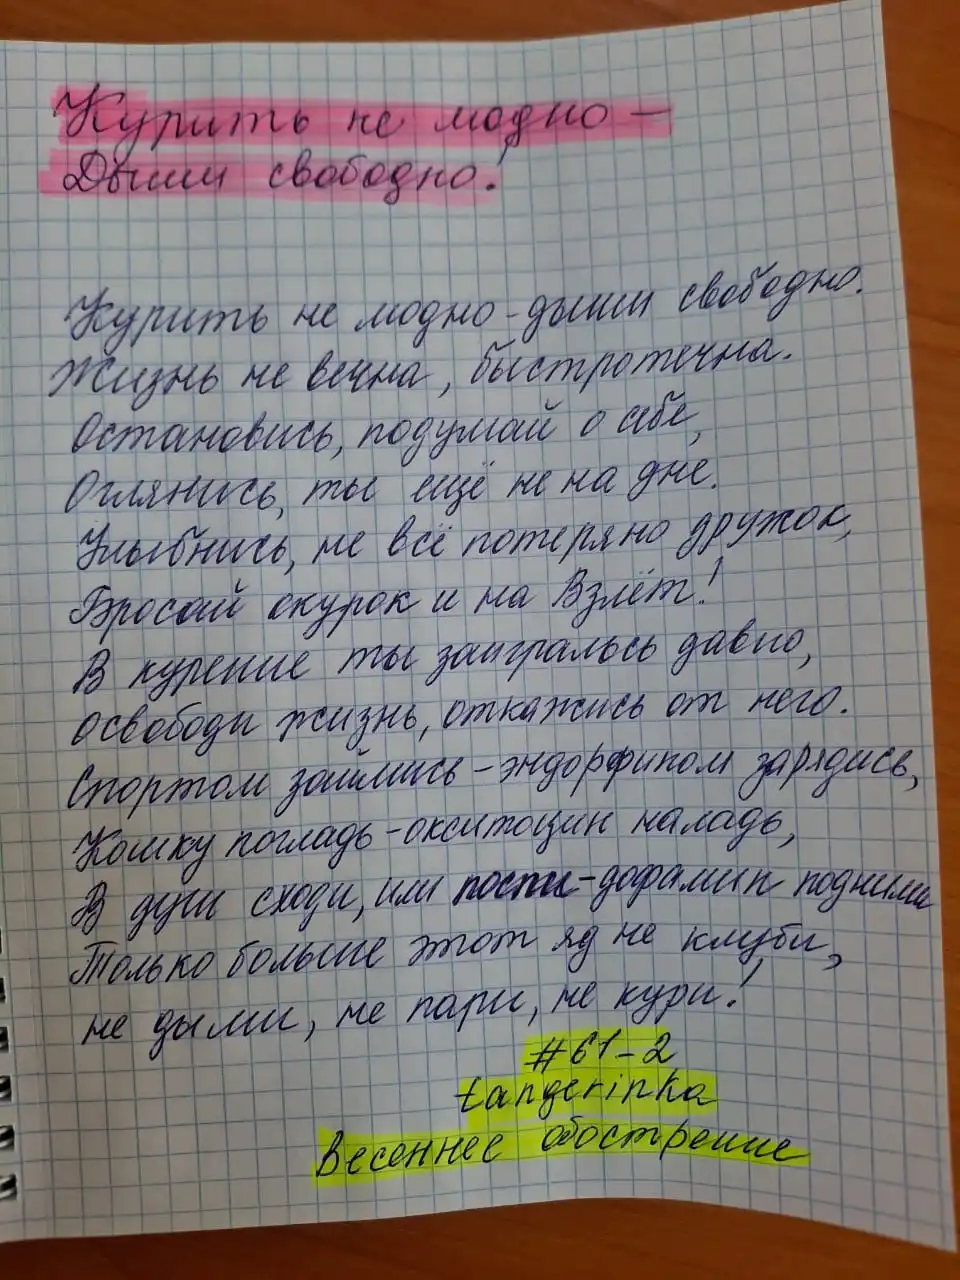 Курить не модно –
Дыши свободно!
Курить не модно - дыши свободно.
Жизнь не вечна, быстротечна.
Остановись, подумай о себе,
Оглянись, ты ещё не на дне.
Улыбнись, не всё потеряно дружок,
Бросай окурок и на Взлёт!
В курение ты заигралсь давно,
освободи жизнь, откажись от него.
Спортом займись - эндорфином зарядись,
Кошку погладь - окситоцин наладь,
В душ сходи, или поспи - дофамин подними
Только больше этот яд не клуби,
не дыми, не пари, не кури!
#61-2
tangerinka
Весеннее обострение